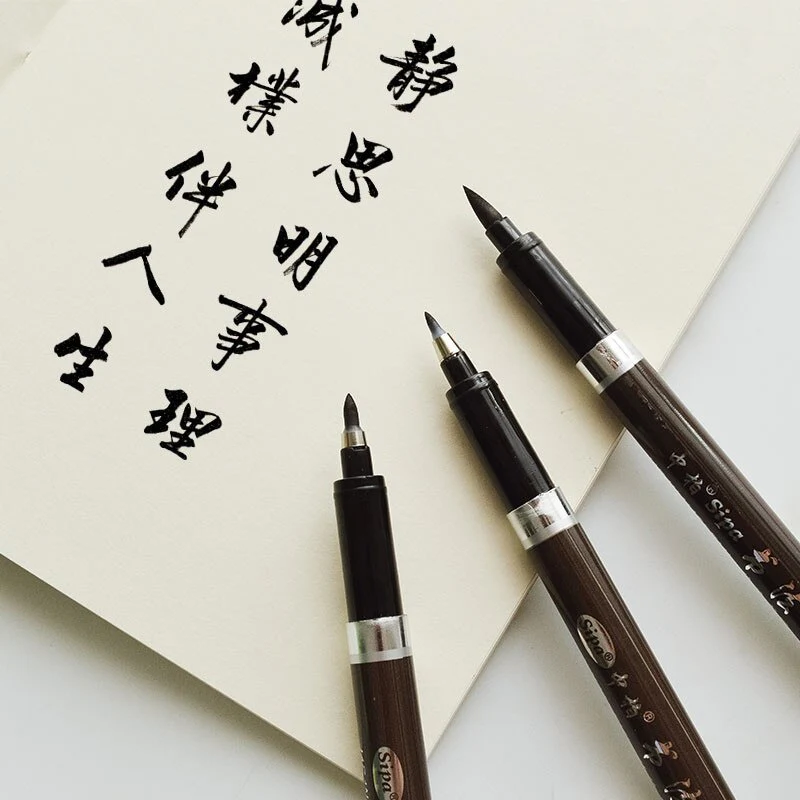 静思明事理
诚樸伴人生
Sipa®
Sipa®
中柏®
中柏®Sipa